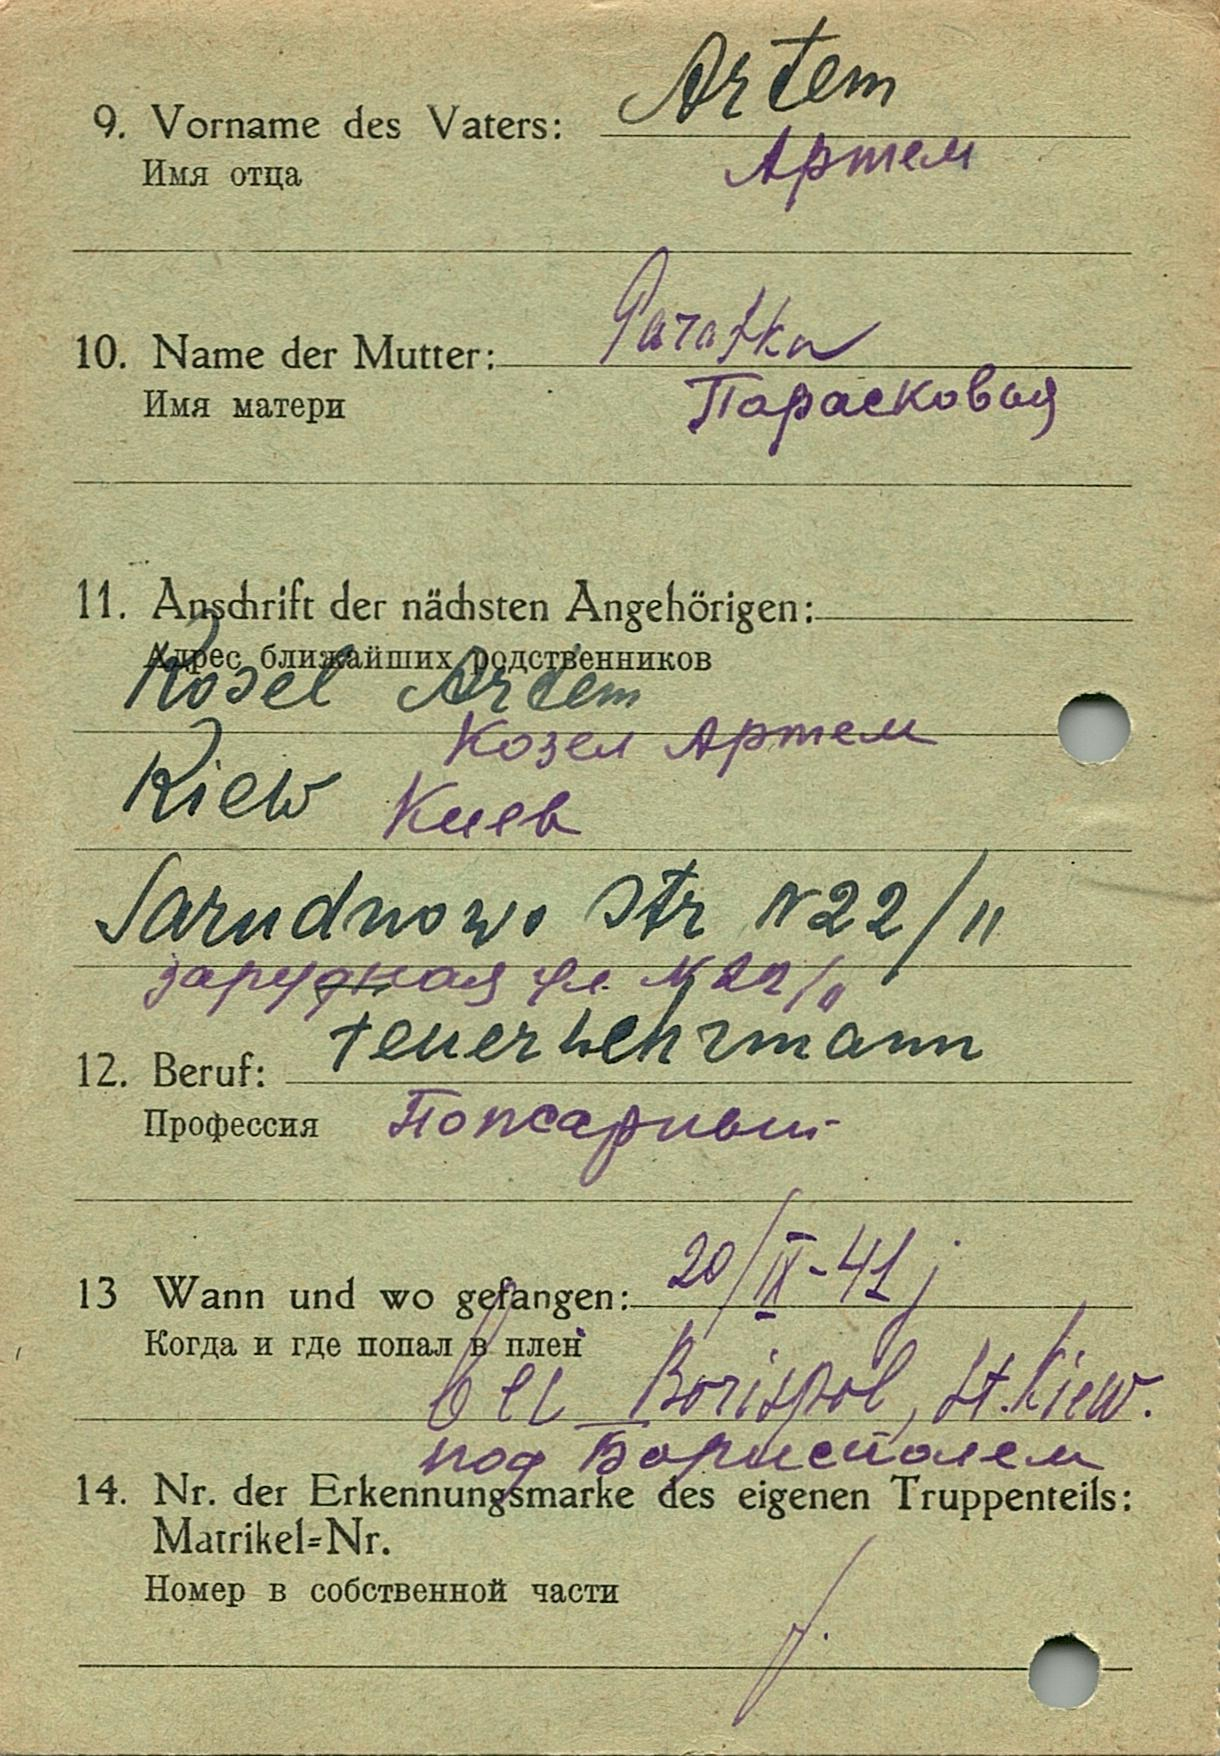 9. Vorname des Vaters: Artem
Имя отца Артем
10. Name der Mutter: Paraska
Имя матери Парасковья
11. Anschrift der nächsten Angehörigen:
Адрес ближайших родственников
Kosel Artem
Козел Артем
Kiew Киев
Sarudnowo Str N22/11
зарудная ул. N 22/11
12. Beruf: Feuerwehrmann
Профессия Пожарный
13 Wann und wo gefangen: 20/IX-41 j
Когда и где попал в плен
bei Borispol, St. Kiew.
под Борисполем
14. Nr. der Erkennungsmarke des eigenen Truppenteils:
Matrikel-Nr.
Номер в собственной части